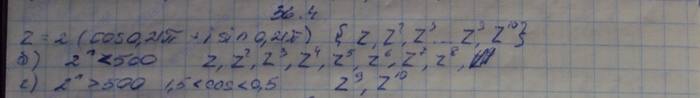 36.4
z = 2 (cos 0,21π + i sin 0,21π) {z, z², z³ ... z⁹, z¹⁰}
б) 2ⁿ < 500 z, z², z³, z⁴, z⁵, z⁶, z⁷, z⁸,
c) 2ⁿ > 500 1,5 < cos < 0,5 z⁹, z¹⁰